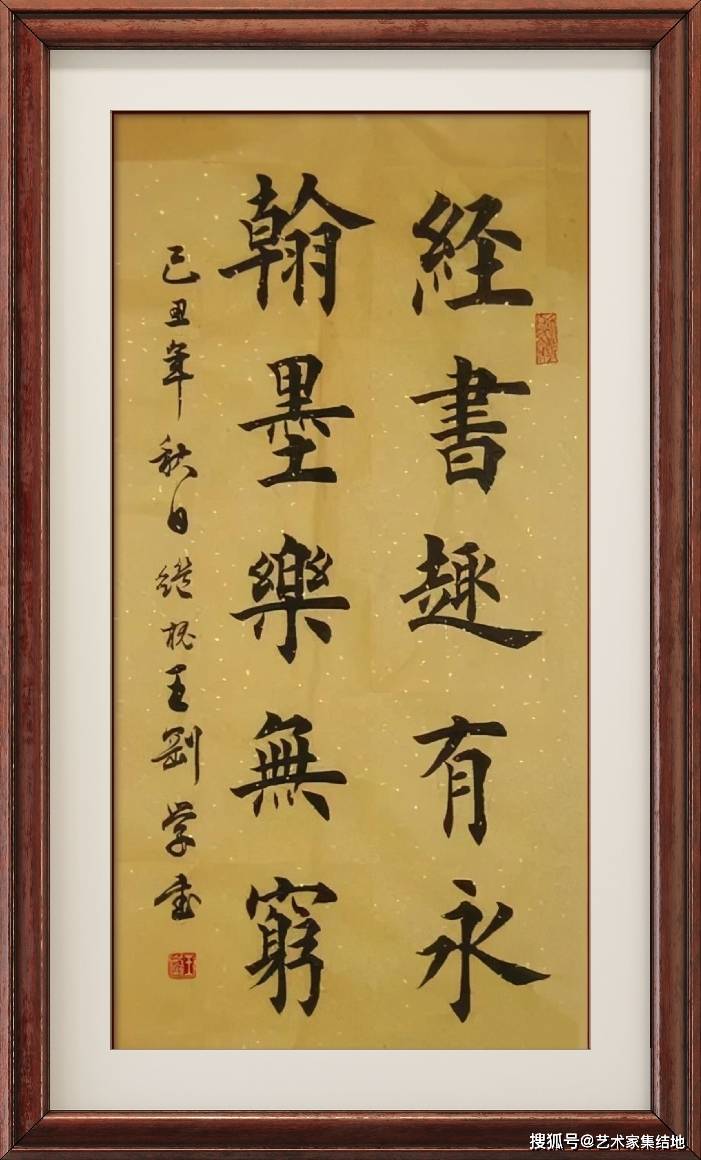 経書趣有永
翰墨樂無窮
己丑年秋日継槐王剛学書
搜狐号@艺术家集结地